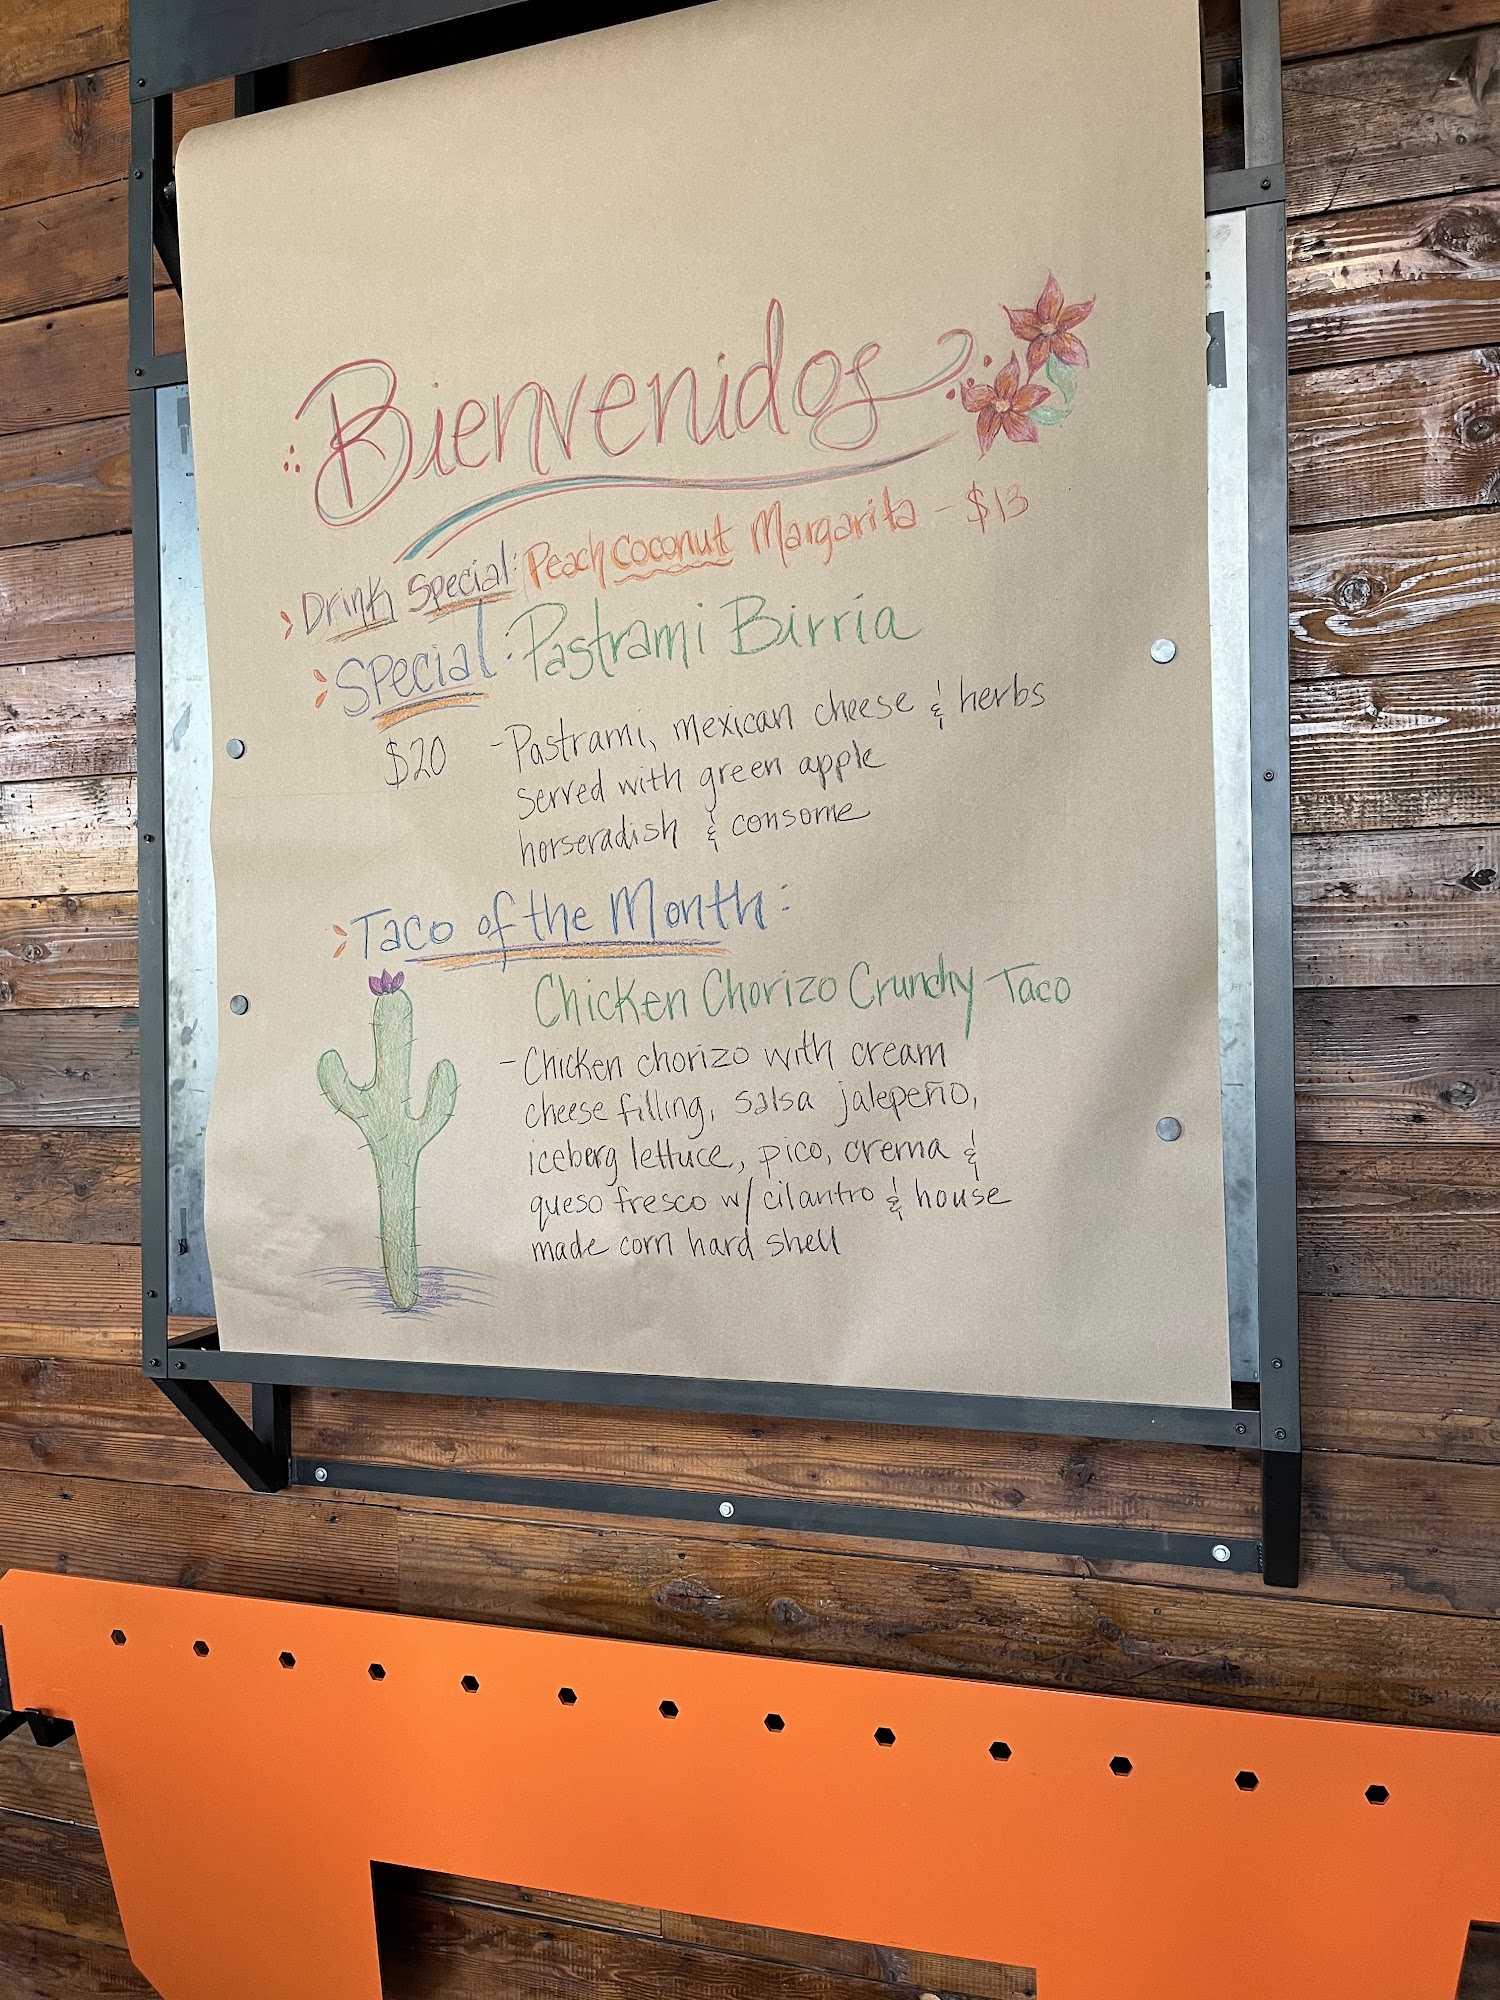 Bienvenidos
Drink Special: Peach Coconut Margarita - $13
Special: Pastrami Birria
$20 - Pastrami, mexican cheese & herbs
served with green apple
horseradish & consome
Taco of the Month:
Chicken Chorizo Crunchy Taco
- Chicken chorizo with cream
cheese filling, salsa jalepeño,
iceberg lettuce, pico, crema &
queso fresco w/ cilantro & house
made corn hard shell